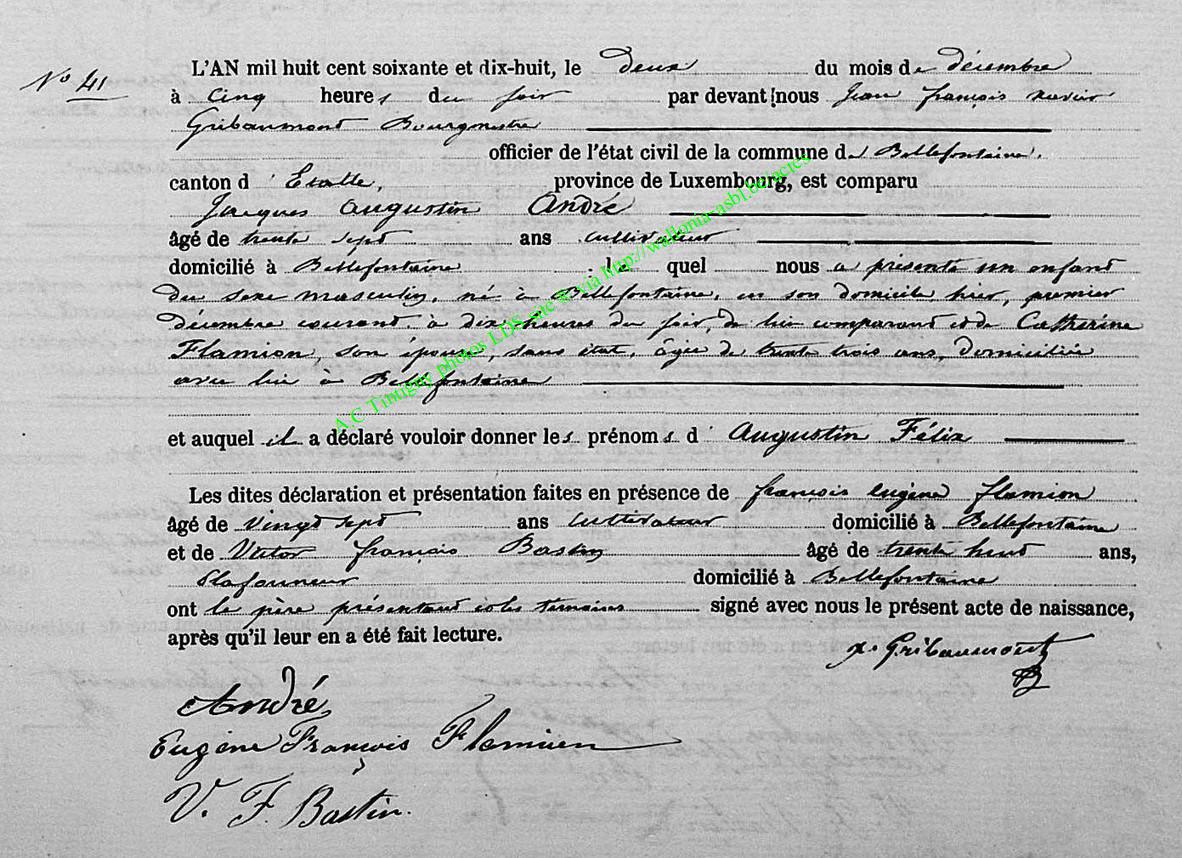 N° 41
L'AN mil huit cent soixante et dix-huit, le deux du mois de décembre
à cinq heures du soir par devant nous Jean françois xavier
Gribaumont Bourgmestre
officier de l'état civil de la commune de Bellefontaine,
canton d'Etalle, province de Luxembourg, est comparu
Jacques Augustin André
âgé de trente sept ans cultivateur
domicilié à Bellefontaine le quel nous a présenté un enfant
du sexe masculin, né à Bellefontaine, en son domicile, hier, premier
décembre courant, à dix heures du soir, de lui comparant et de Catherine
Flamion, son épouse, sans état, âgée de trente trois ans, domiciliée
avec lui à Bellefontaine
et auquel il a déclaré vouloir donner les prénoms d'Augustin Félix
Les dites déclaration et présentation faites en présence de françois eugène flamion
âgé de vingt sept ans cultivateur domicilié à Bellefontaine
et de Victor françois Bastin âgé de trente huit ans,
Plafonneur domicilié à Bellefontaine
ont le père présentant et les témoins signé avec nous le présent acte de naissance,
après qu'il leur en a été fait lecture.
x. Gribaumont
André
Eugène François Flamion
V. F. Bastin.
A.C Tintigny photos LDS, site & via http://wallonia-asbl.be/actes